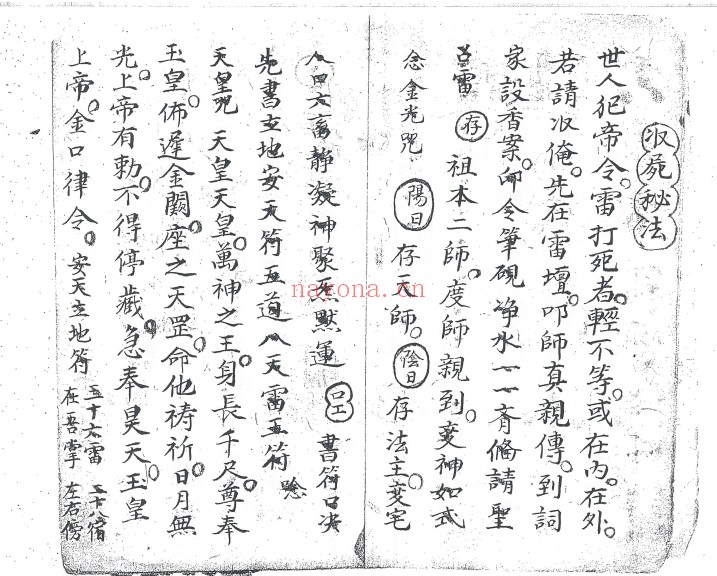 收屍秘法
世人犯帝令。雷打死者。輕不等。或在內。在外。
若請收俺。先在雷壇。叩師真親傳。到詞
家設香案。卯令筆硯净水一一齊俻請聖
吕雷 存 祖本二師。度師親到。变神如式
念金光咒 陽日 存天師。陰日 存法主变宅
静凝神聚炁默運 書符口决
先書立地安天符五道八天雷五符 唸
天皇咒 天皇天皇。萬神之王。身長千尺。尊奉
玉皇。佈遲金闕。座之天罡。命他祷祈。日月無
光。上帝有勅。不得停藏。急奉昊天。玉皇
上帝。金口律令。安天立地符 五十六雷 二十八宿
在吾掌 左右傍
naxona.cn